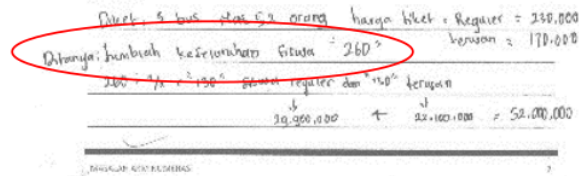 Diket, 5 bus Mas 52 orang harga tiket : Reguler = 230.000
terusan = 170.000
Ditanya: Jumblah keseluruhan siswa "260"
260 : 2 = "130" siswa reguler dan "130" terusan
29.900.000 + 22.100.000 = 52.000,000
7